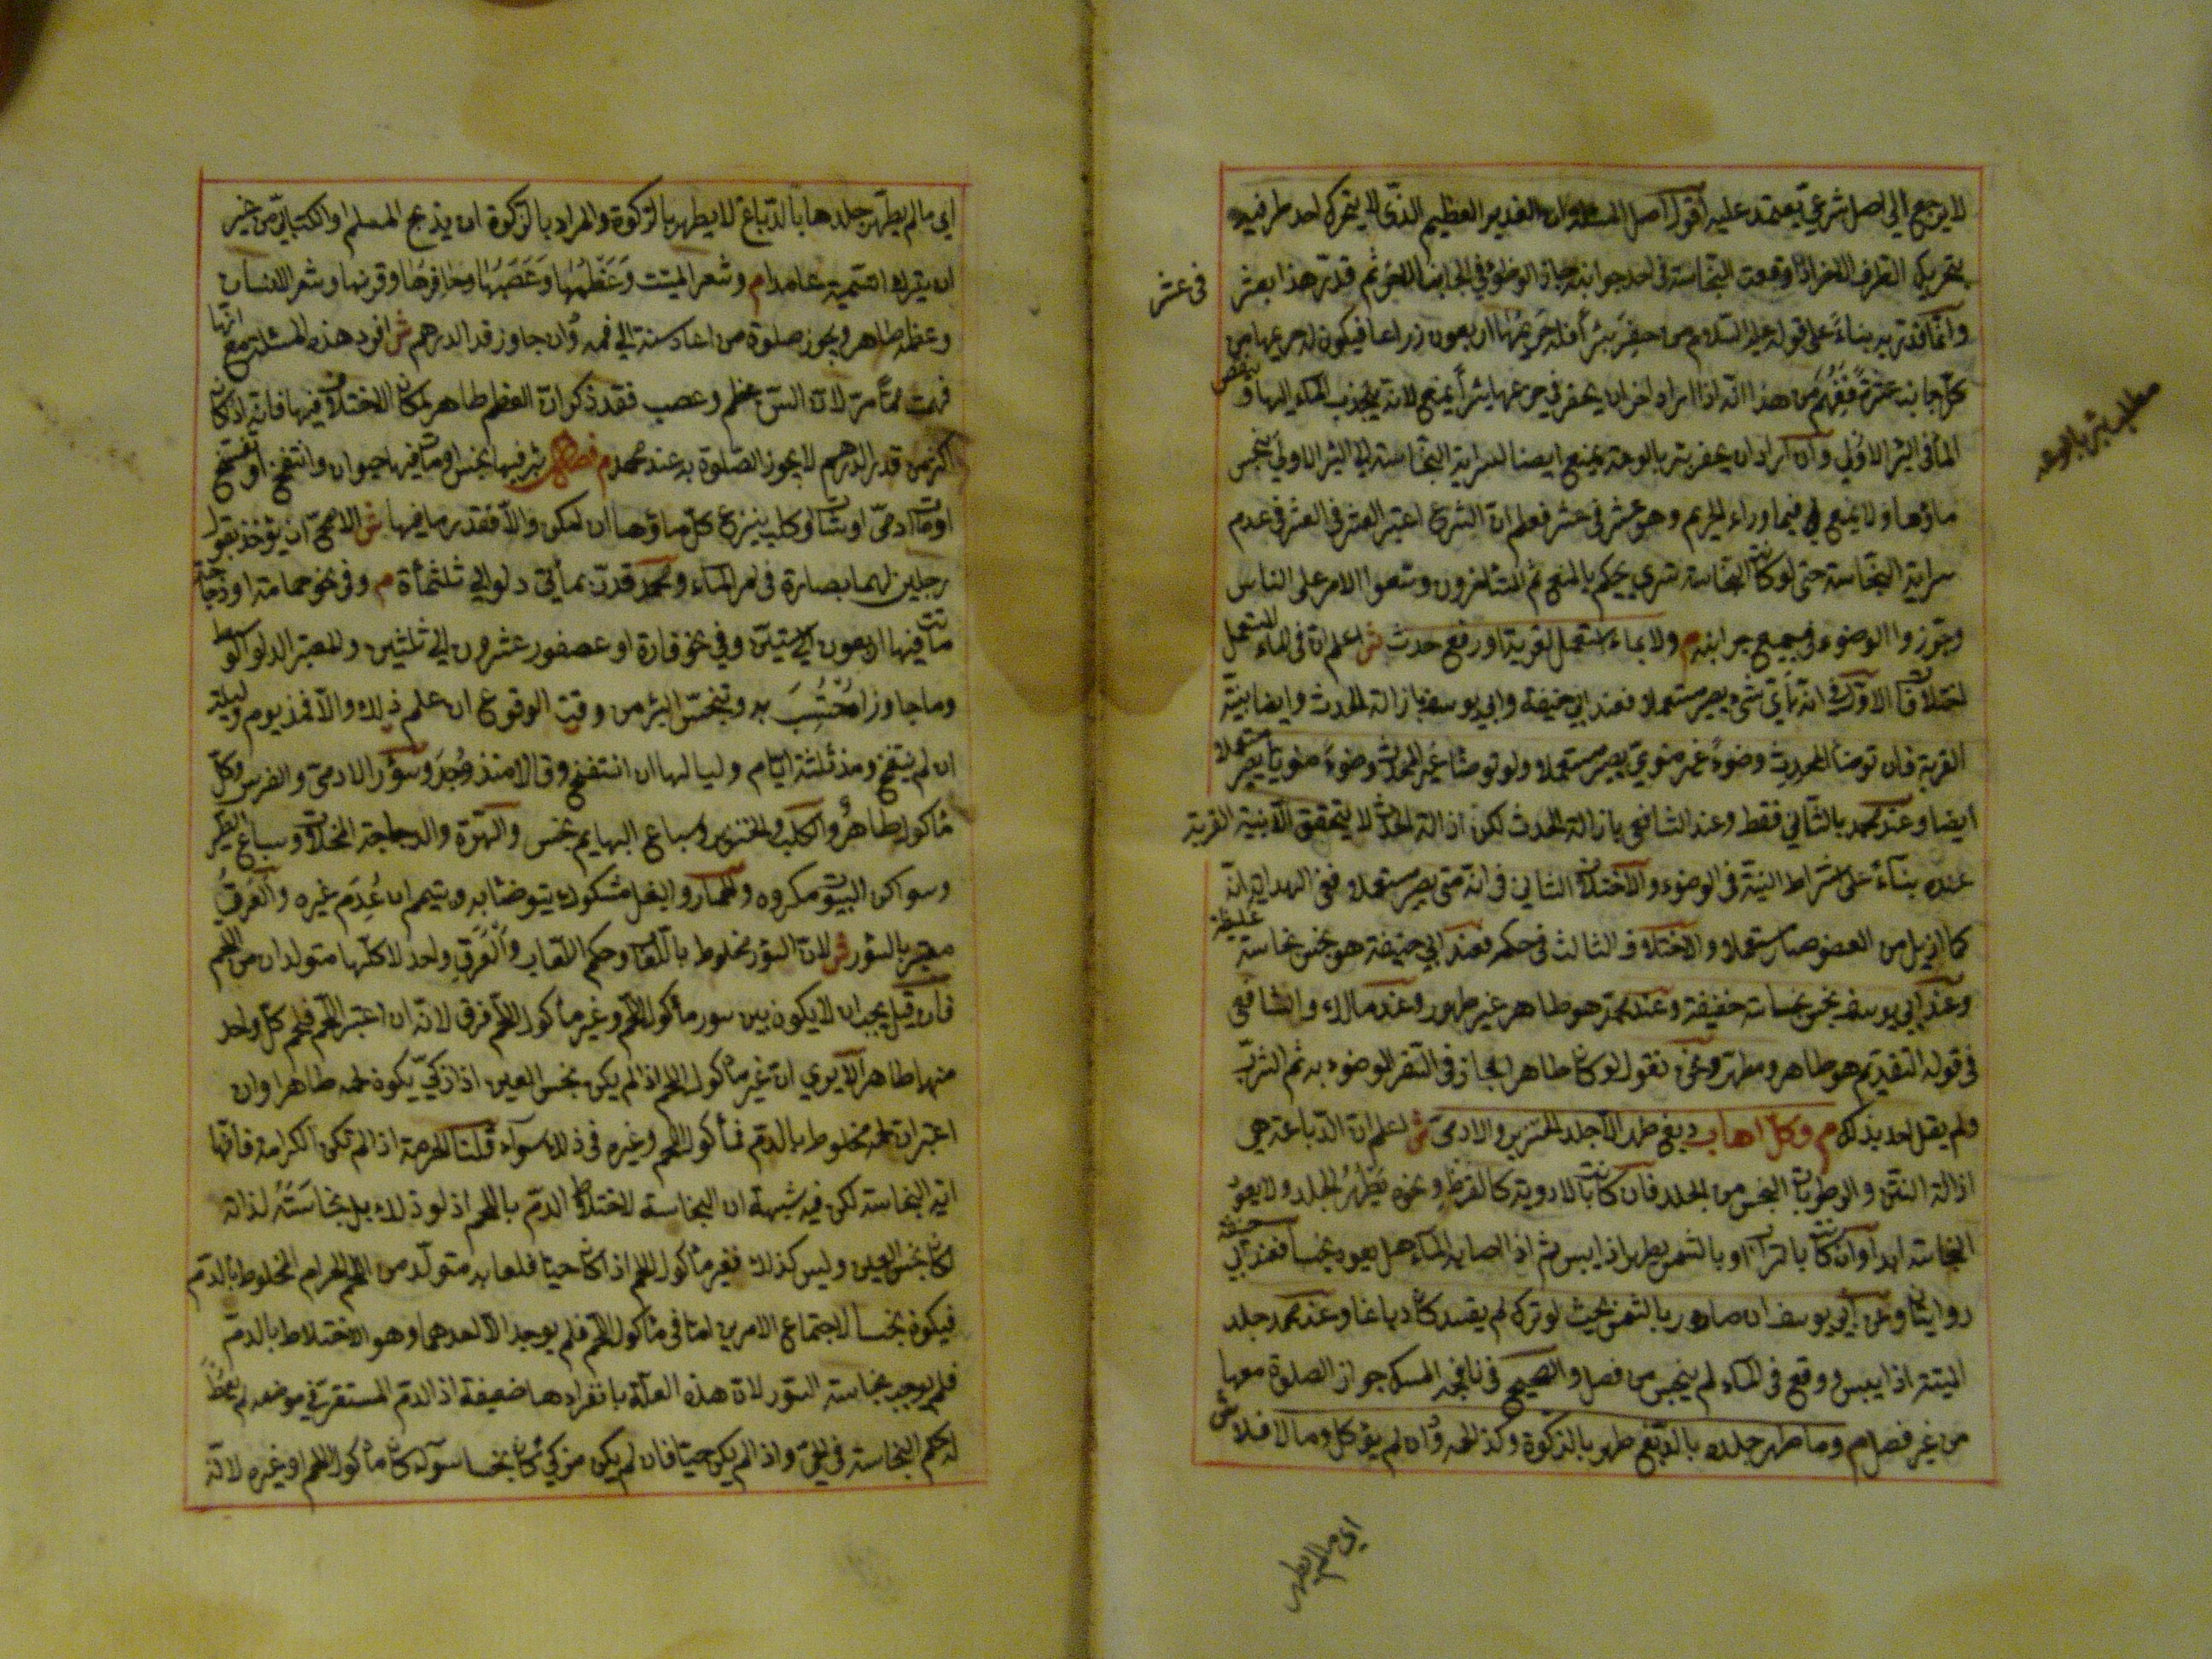 لا يرجع الي اصل شرعيّ يعتمد عليه اقول اصل المسئلة ان الغدير العظيم الذي لا يتحرك احد طرفيه
بتحريك الطرف الاخر اذا وقعت النجاسة في احد جوانبه جاز الوضوء في الجانب الاخر ثم قدّر هذا بعشر
في عشر
وانما قدّر به بناءً على قوله عليه السلام من حفر بئراً فله حريمها اربعون ذراعا فيكون له حريمها من
كلّ جانب عشرة ففهم من هذا انّه اذا اراد اخر ان يحفر في حريمها بئراً يمنع لانه ينجذب الماء اليها و ينقص
الماء في البئر الاولي وان اراد ان يحفر بئر بالوعة يمنع ايضا لسراية النجاسة الي البئر الاولي ينجس
مطلب بئر بالوعه
ماؤها ولا يمنع فيما وراء الحريم وهو عشر في عشر فعلم انّ الشرع اعتبر العشر في العشر في عدم
سراية النجاسة حتى لو كانت النجاسة تسري يحكم بالمنع ثم المتأخرون وسّعوا الامر على الناس
وجوّزوا الوضوء في جميع جوانبه م ولا بماء استعمل لقربة او رفع حدث ش اعلم انّ في الماء المستعمل
اختلافا الاوّل في انّه بأيّ شيء يصير مستعملا فعند ابي حنيفة وابي يوسف بازالة الحدث وايضا بنيّة
القربة فان توضأ المحدث وضوءً غير منويّ يصير مستعملا ولو توضأ غير المحدث وضوءً منويا يصير مستعملا
ايضا وعند محمد بالثاني فقط وعند الشافعي بازالة الحدث لكن ازالة الحدث لا يتحقق الا بنية القربة
عنده بناءً على اشتراط النيّة في الوضوء والاختلاف الثاني في انّه متى يصير مستعملا ففي الهداية انّه
كما زيل من العضو صار مستعملا والاختلاف الثالث في حكمه فعند ابي حنيفة هو نجس نجاسة غليظة
وعند ابي يوسف نجس نجاسة خفيفة وعند محمد هو طاهر غير طهور وعند مالك والشافعي
في قوله القديم هو طاهر ومطهر ونحن نقول لو كان طاهرا لجاز في السفر الوضوء به ثم الشرب
ولم يقل احد بذلك م وكلّ اهاب دبغ طهر الا جلد الخنزير والادمي ش اعلم انّ الدّباغة هي
ازالة النتن والرطوبات النجس من الجلد فان كانت بالادوية كالقرظ ونحوه يطهر الجلد ولا يعود
النجاسة ابدا وان كانت بالتراب او بالشمس يطهر اذا يبس ثم اذا اصابه الماء هل يعود نجسا فعند ابي حنيفة
روايتان وعن ابي يوسف ان صار بالشمس بحيث لو ترك لم يفسد كان دباغا وعند محمد جلد
الميتة اذا يبس ووقع في الماء لم ينجس من فصل والصحيح في نافجة المسك جواز الصلوة معها
من غير فصل م وما طهر جلده بالدبغ طهر بالزكوة وكذا لحمه وان لم يؤكل وما لا فلا ش
اي ما لم يطهر
اي ما لم يطهر جلدها بالدّباغ لا يطهر بالزكوة والمراد بالزكوة ان يذبح المسلم او الكتابيّ من غير
ان يترك التسمية عامدا م وشعر الميتت وعظمها وعصبها وحافرها وقرنها وشعر الانسان
وعظمه طاهر ويجوز صلوة من اعاد سنة الي فمه وان جاوز قدر الدرهم ش افرد هذه المسئلة مع انها
فهمت ممّا مرّ لانّ السنّ عظم وعصب فقد ذكر انّ العظم طاهر لمكان الاختلاف فيها فانّه اذا كان
اكثر من قدر الدرهم لا يجوز الصّلوة به عند محمد م فصل بئر فيها نجس او مات فيها حيوان وانتفخ او تفسّخ
او مات ادميّ او شاة او كلب ينزح كلّ مائها ان امكن والّا فقدر ما فيها ش الاصحّ ان يؤخذ بقول
رجلين لهما بصارة في امر الماء ومحمد قدّر بمأتي دلو الي ثلثمأة م وفي نحو حمامة او دجاجة
ماتت فيها اربعون الي ستّين وفي نحو فارة او عصفور عشرون الي ثلثين والمعتبر الدلو الوسط
وما جاوز احتسب به وتنجّس البئر من وقت الوقوع ان علم ذلك والّا فمذ يوم وليلة
ان لم ينتفخ ومذ ثلثة ايّام ولياليها ان انتفخ وقالا مذ وُجد وسؤر الادميّ والفرس وكلّ
مأكول طاهر والكلب والخنزير وسباع البهايم نجس والهرّة والدجاجة المخلاة وسباع الطير
وسواكن البيوت مكروه والحمار والبغل مشكوك يتوضّأ به ويتيمم ان عُدِم غيره والعرقُ
معتبر بالسّؤر ش لانّ السّؤر مخلوط باللّعاب وحكم اللّعاب والعرق واحد لانّ كلّهما متولدان من اللّحم
فان قيل يجب ان لا يكون بين سور مأكول اللّحم وغير مأكول اللّحم فرق لانّه ان اعتبر اللّحم فلحم كلّ واحد
منها طاهر الا يري انّ غير مأكول اللحم اذا لم يكن نجس العين اذا زكّي يكون لحمه طاهرا وان
اعتبر انّ لحمه مخلوط بالدّم فمأكول اللحم وغيره في ذلك سوآء قلنا الحرمة اذا لم تكن الكرامة فانّها
اية النجاسة لكن فيه شبهة ان النجاسة لاختلاط الدّم باللحم اذ لولا ذلك بل نجاسته لذاته
لكان نجس العين وليس كذلك فغير مأكول اللحم اذا كان حيّا فلعابه متولّد من اللّحم الحرام المخلوط بالدّم
فيكون نجسا لاجتماع الامرين امّا في مأكول اللّحم فلم يوجد الّا احدهما وهو الاختلاط بالدمّ
فلم يوجب نجاسة السّور لانّ هذه العلّة بانفرادها ضعيفة اذ الدمّ المستقرّ في موضعه لم يعط
له حكم النجاسة في الحيّ واذا لم يكن حيّا فان لم يكن مزكّي كان نجسا سوآء كان مأكول اللحم او غيره لانّه